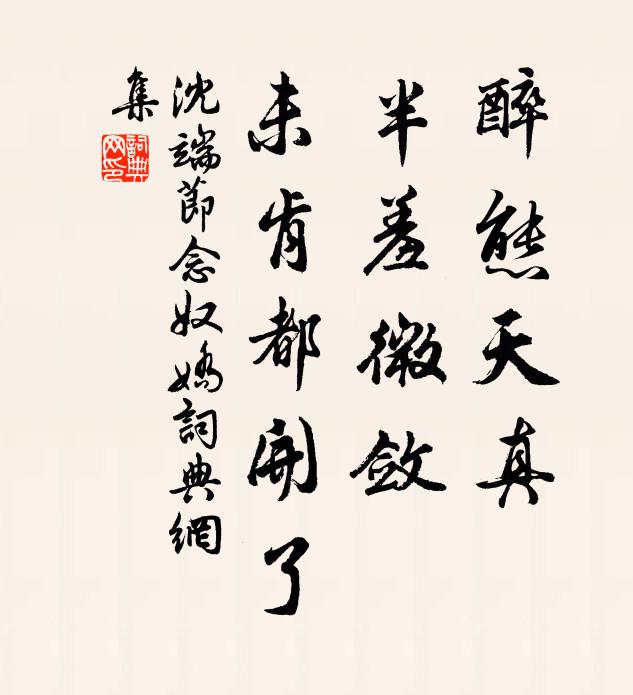 醉態天真
半羞微斂
未肯都開了
沈端節念奴嬌詞典網
集
詞典
网印